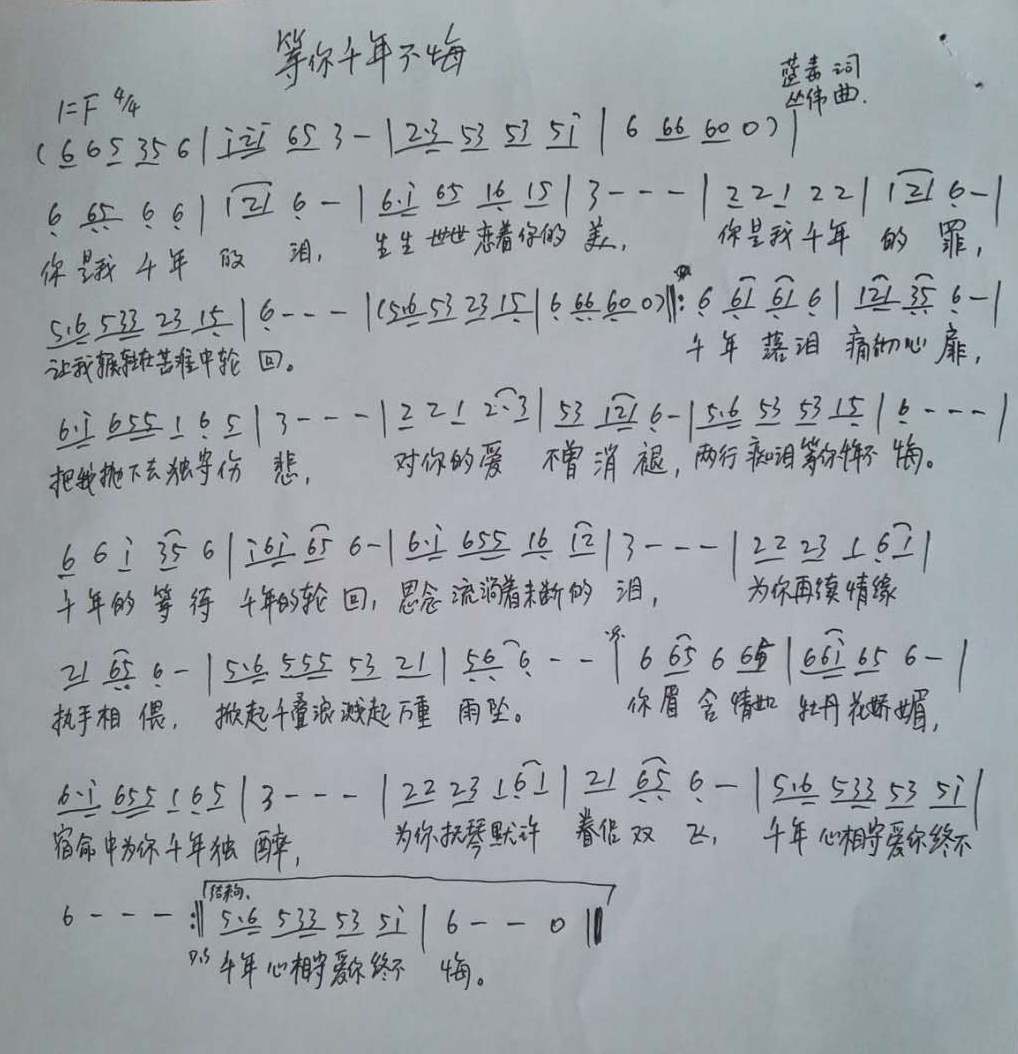 等你千年不悔
蓝毒词
丛伟曲.
1=F 4/4
(6 65 35 6 | i2i 65 3 - | 2·3 53 53 5i | 6 66 60 0) |
6 65 6 6 | 121 6 - | 6·i 65 16 15 | 3 - - - | 2 2 1 2 2 | 121 6 - |
你是我千年的泪, 生生世世恋着你的美, 你是我千年的罪,
5·6 533 23 15 | 6 - - - | (5·6 53 23 15 | 6 66 60 0) ‖: 6 61 61 6 | 121 35 6 - |
让我辗转在苦难中轮回。 千年落泪痛彻心扉,
6·i 655 1 6 5 | 3 - - - | 2 2 1 2·3 | 53 121 6 - | 5·6 53 53 15 | 6 - - - |
把我抛下去独守伤悲, 对你的爱不曾消褪, 两行痴泪等你千年不悔。
6 6 i 35 6 | i6i 65 6 - | 6·i 655 16 12 | 3 - - - | 22 23 1 61 |
千年的等待千年的轮回, 思念流淌着未断的泪, 为你再续情缘
21 65 6 - | 5·6 555 53 21 | 56 6 - - | 6 65 6 65 | 66i 65 6 - |
执手相偎, 掀起千叠浪溅起万重雨坠。 你眉含情如牡丹花娇媚,
6·i 655 1 65 | 3 - - - | 22 23 1 61 | 21 65 6 - | 5·6 533 53 5i |
宿命中为你千年独醉, 为你抚琴默许眷侣双飞, 千年心相守爱你终不
6 - - - :‖ 结束句. 5·6 533 53 5i | 6 - - 0 ‖
D.S 千年心相守爱你终不悔。